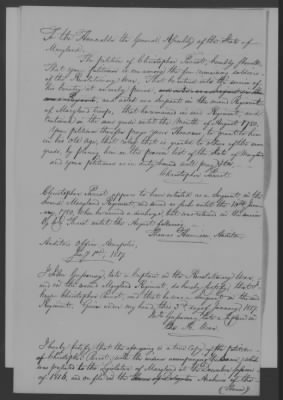 To the Honorable the General Assembly of the State of
Maryland.
The petition of Christopher Peirst, humbly sheweth
That your petitioner is one among the few remaining soldiers
of the Revolutionary War. That he entered into the service of
his Country at an early period,
and acted as a Sergeant in the second Regiment
of Maryland troops. That he remained in said Regiment, and
continued in the same grade until the month of August 1780.
Your petitioner therefore prays your Honours, to grant to him
in his old age, that relief that is granted to others of the same
grade, by placing him on the pension list of the State of Maryland
and your petitioner as in duty bound will pray &c.
Christopher Peirst.
Christopher Peirst appears to have enlisted as a Sergeant in the
second Maryland Regiment, and served as such until the
1780, when he received a discharge, but was retained in the service
of the State until the August following.
Thomas Harrison Auditor
Auditor's Office Annapolis,
Jany 1st, 1817
I John Gassaway, late a Captain in the Revolutionary War,
and in the second Maryland Regiment, do hereby certify, that I
knew Christopher Peirst, and that he was a Sergeant in the said
Regiment. Given under my hand this 3rd day of January 1817.
John Gassaway, late a Captain in
the R. War.
I hereby certify that the foregoing is a true copy of the petition
of Christopher Peirst, with the orders accompanying the same, which
was preferred to the Legislature of Maryland at its December Session
of 1816, and on file in the Archives of the